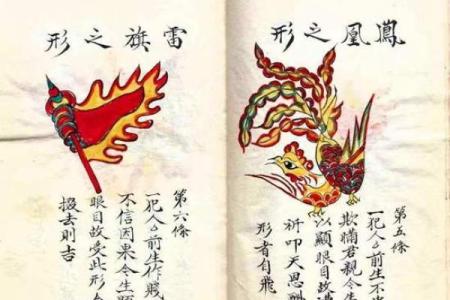 鳳凰之形
第五條
一犯人△前生不
欺瞞君親今生
以顯眼目故遭
祈叩天恩賜
形者自飛
雷旗之形
第六條
一犯人△前生作賤
不信因果今生
眼目故受此形
掇去則吉